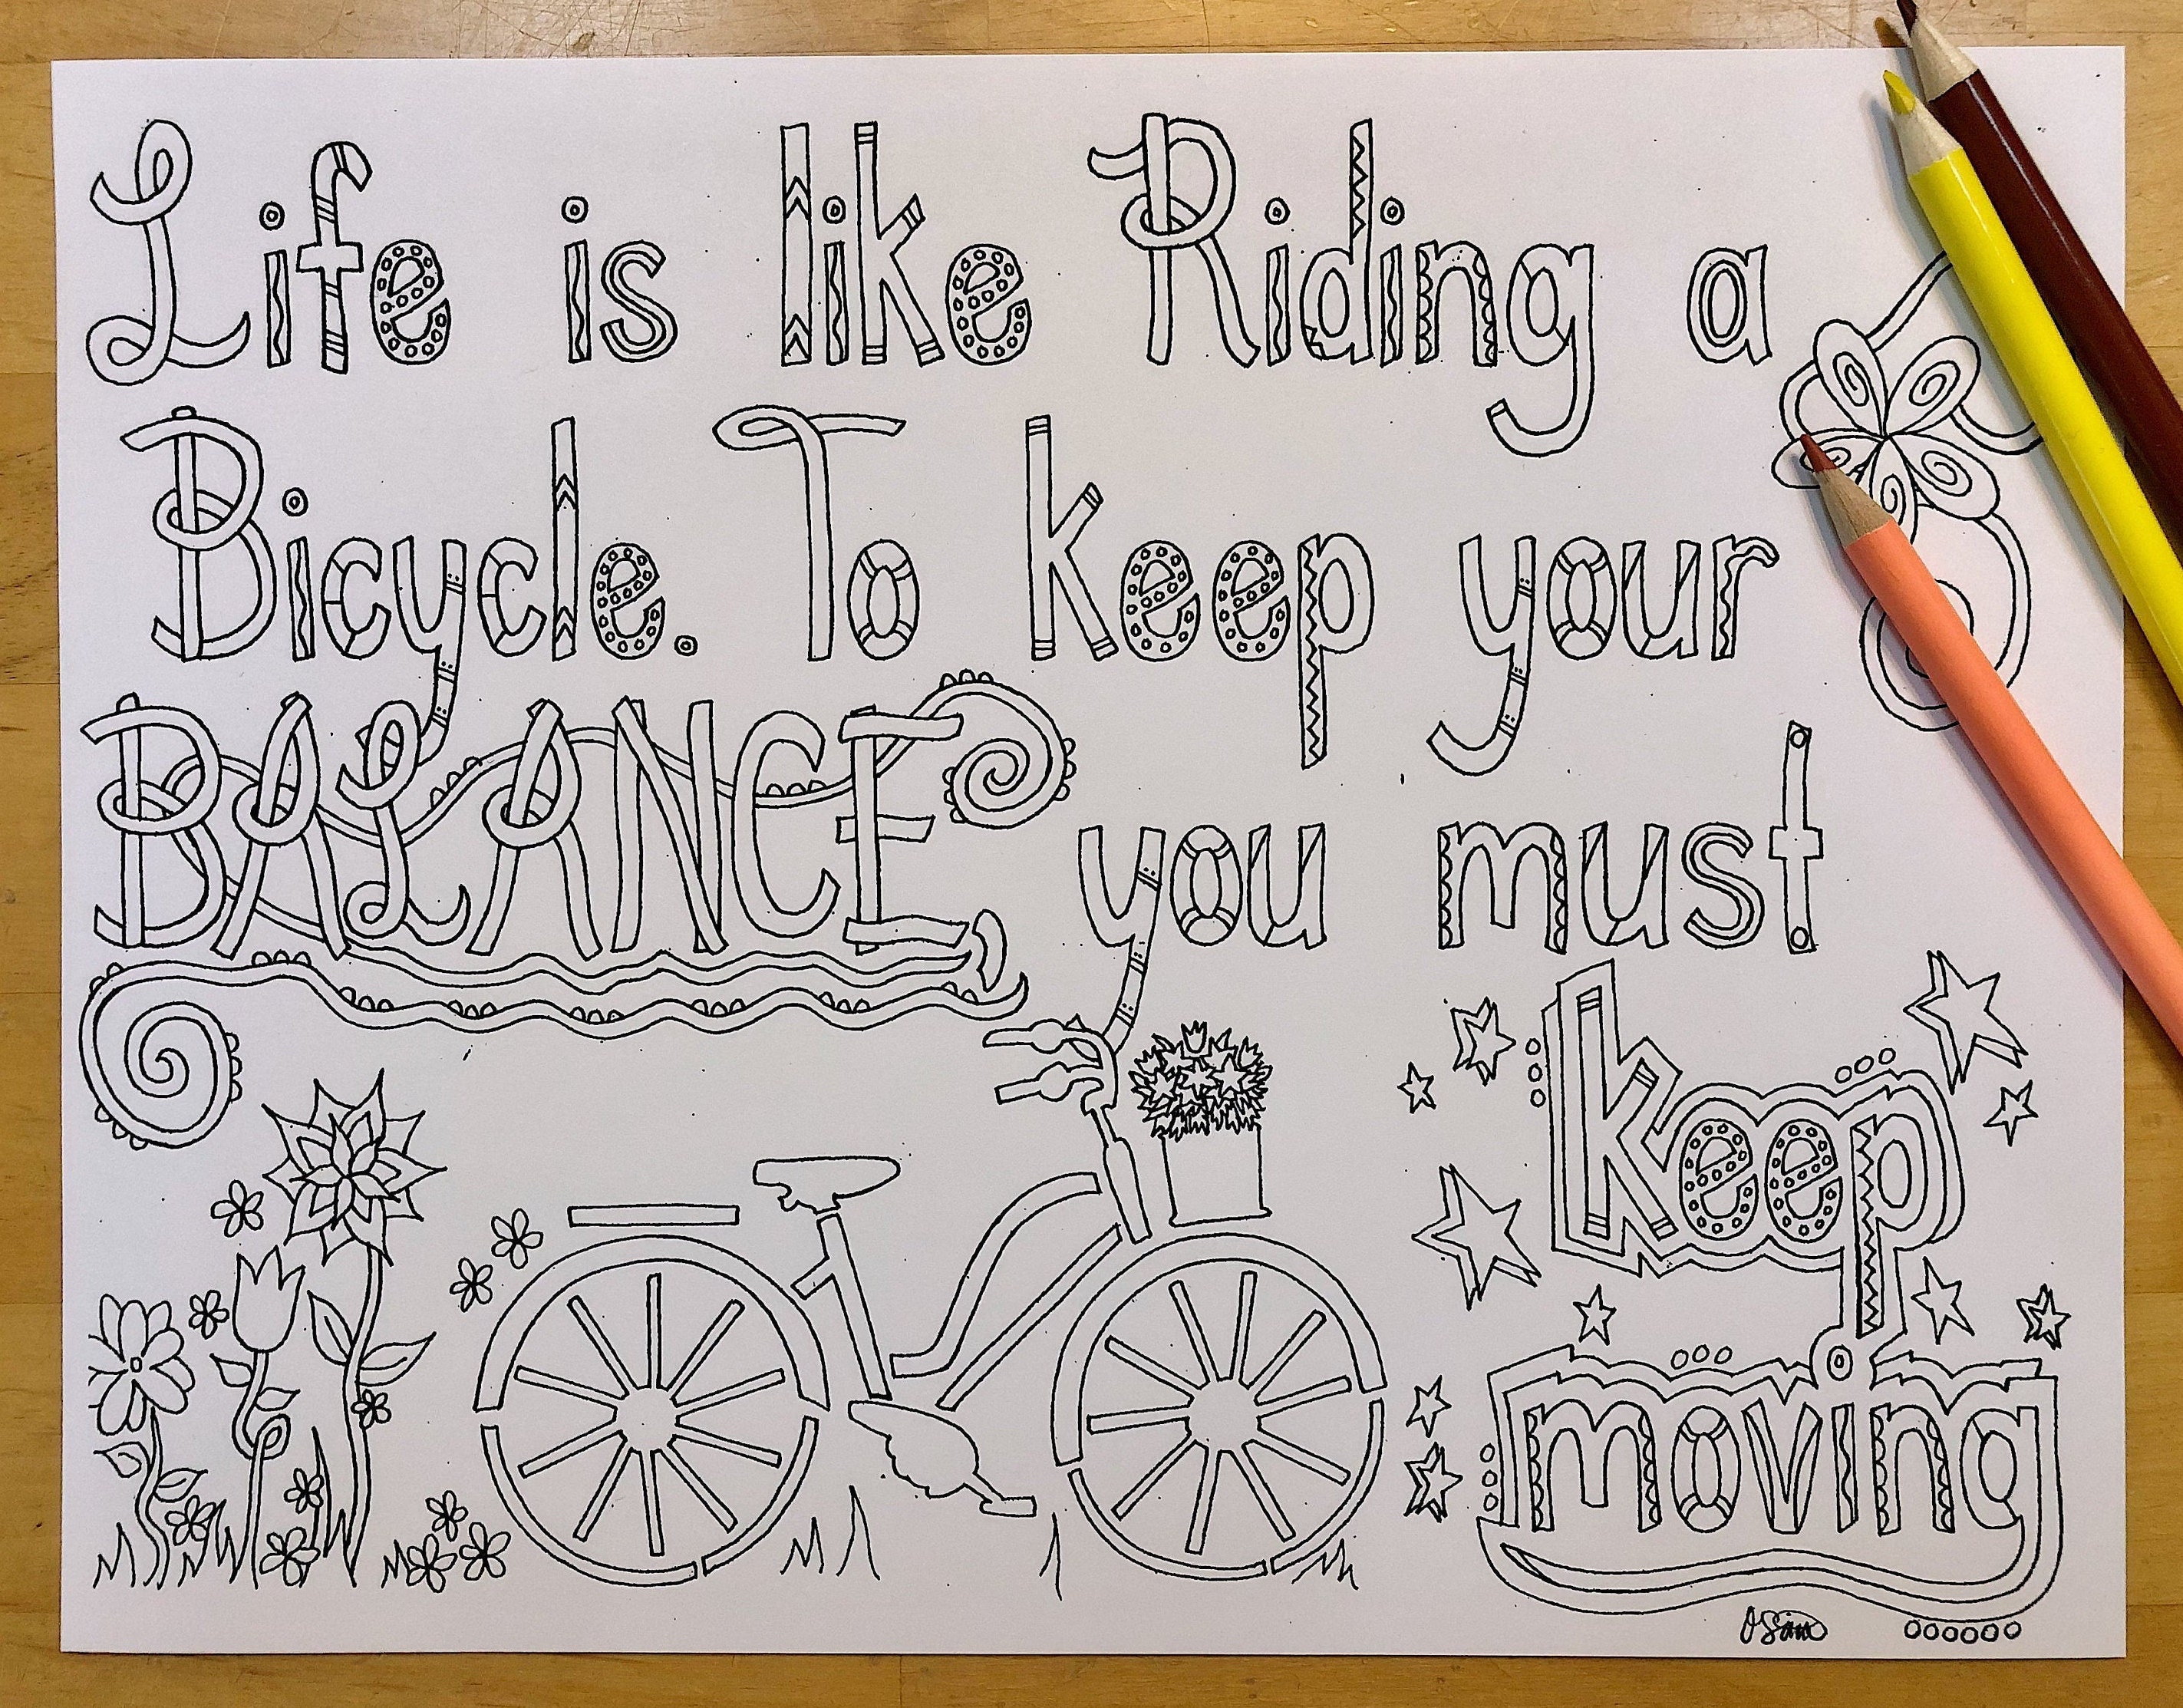 Life is like Riding a
Bicycle. To keep your
BALANCE you must
keep
moving